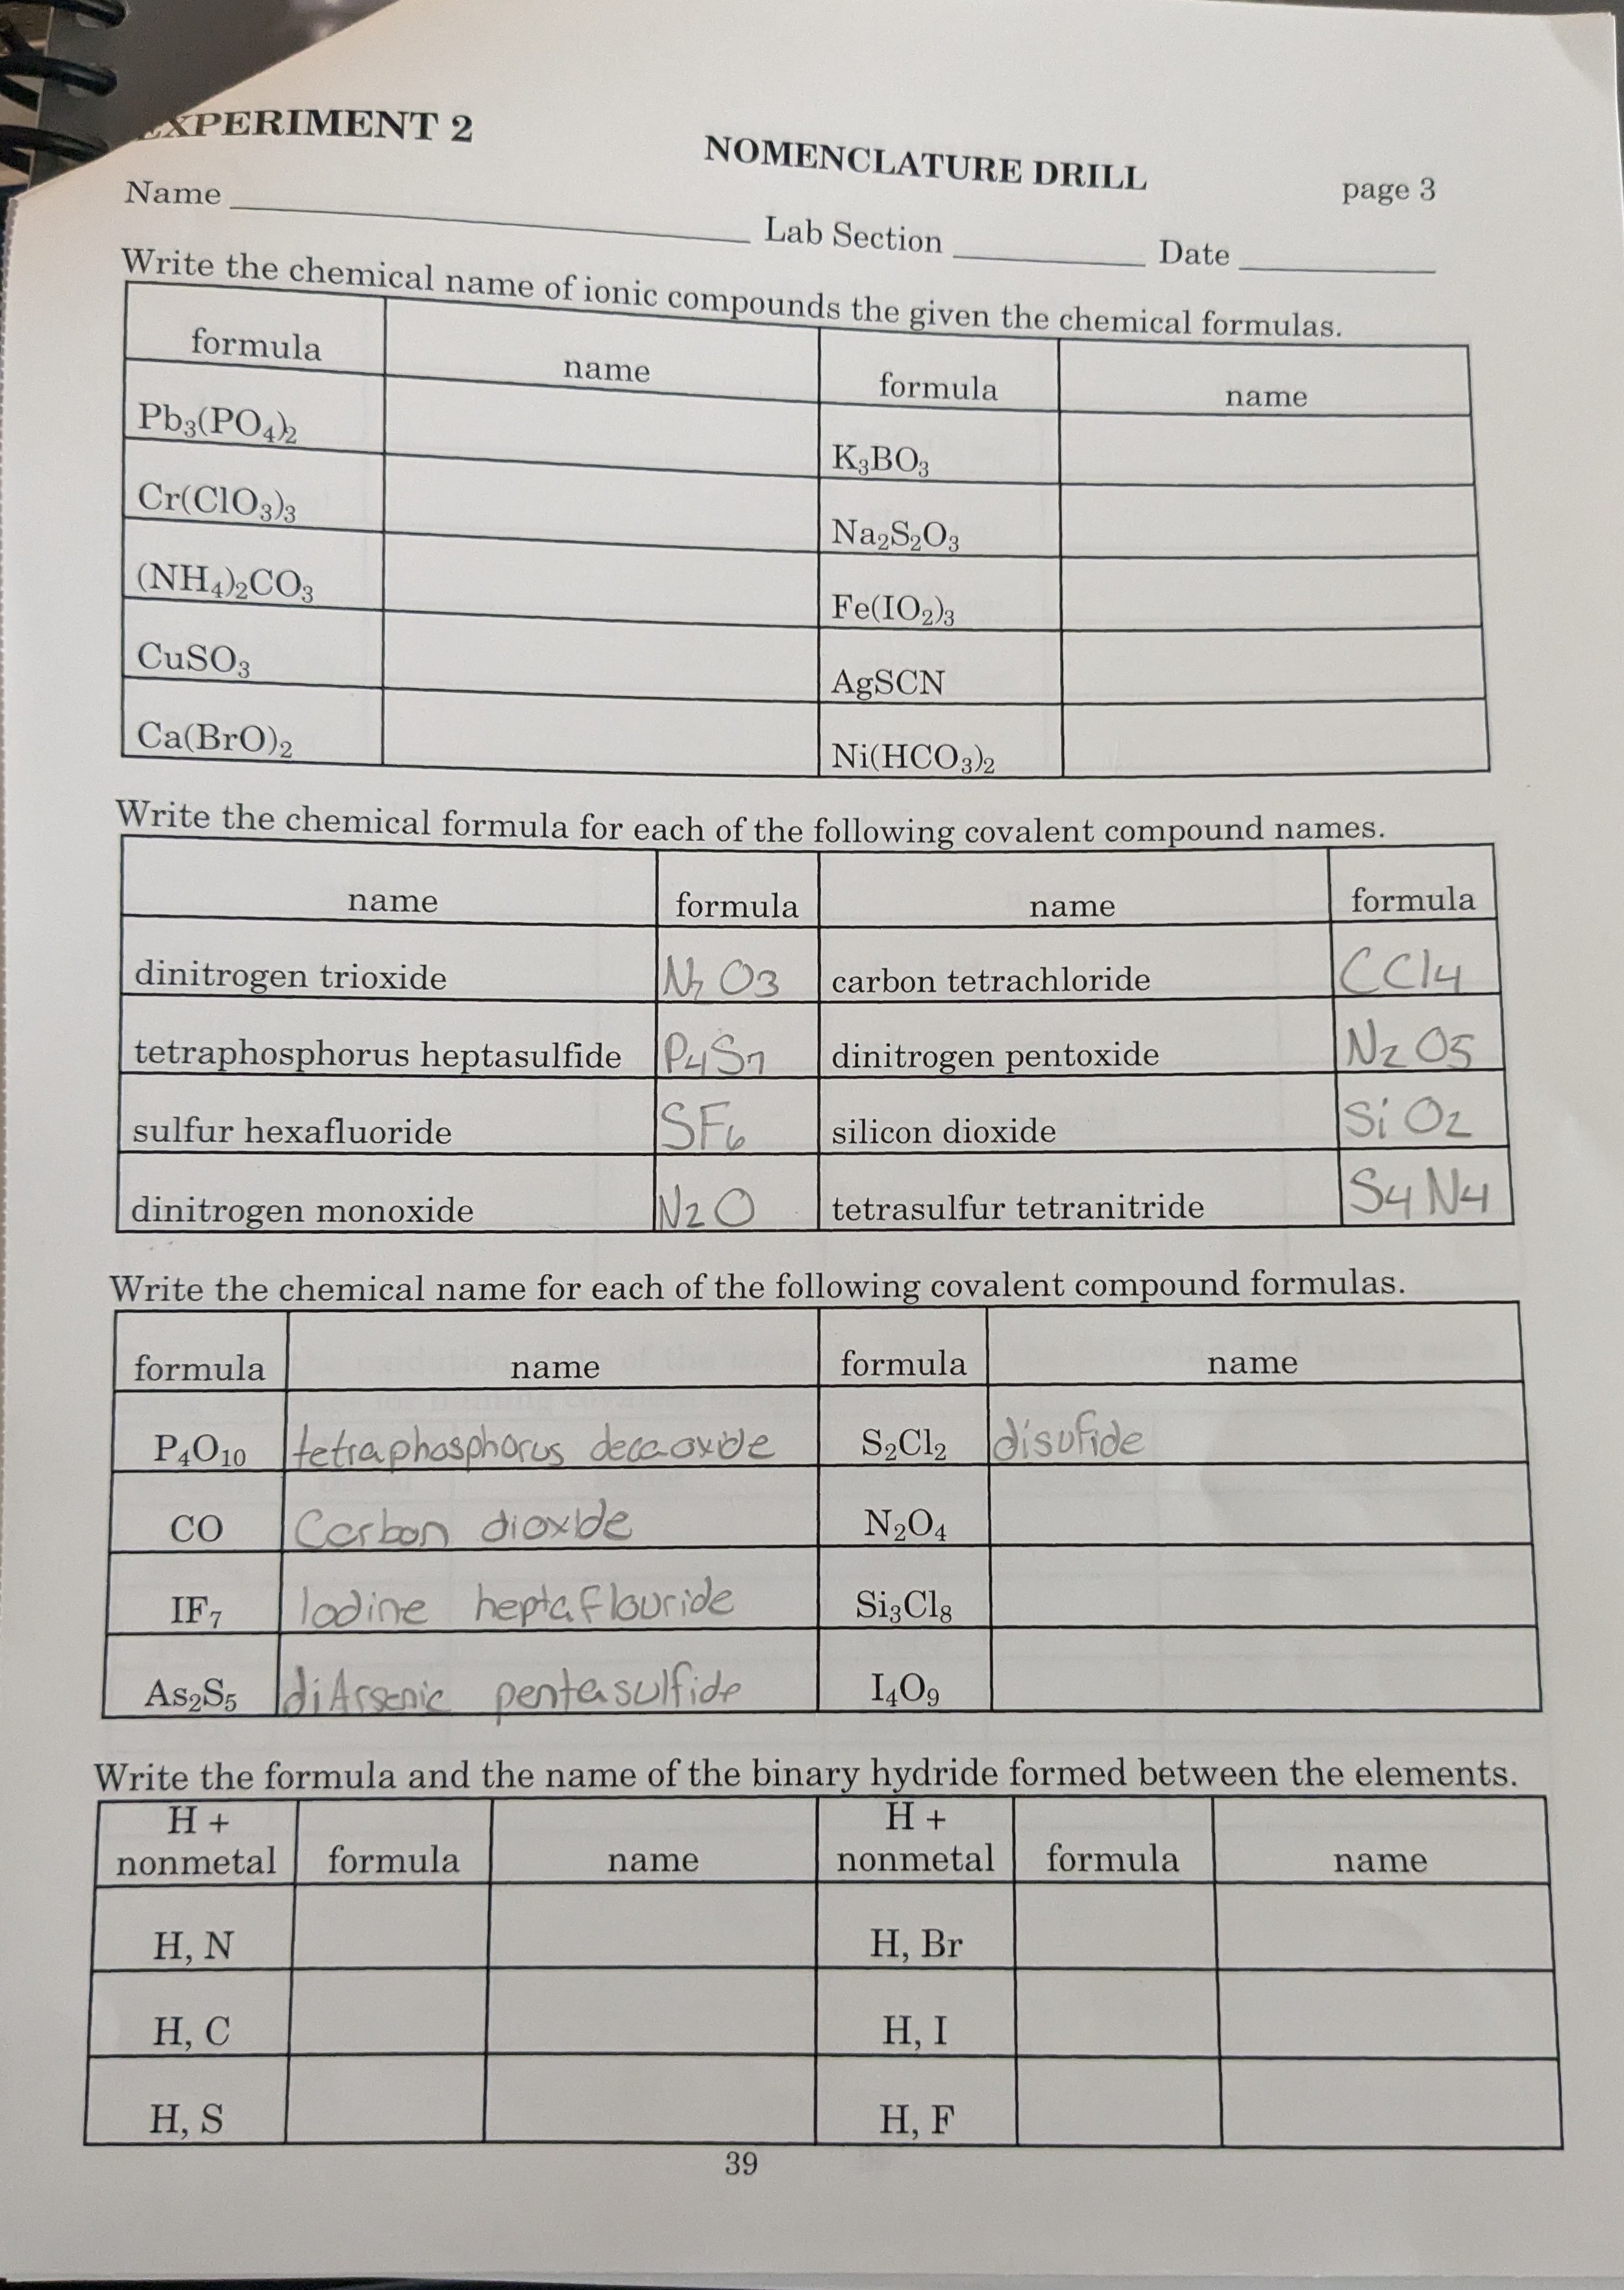 EXPERIMENT 2
NOMENCLATURE DRILL page 3
Name Lab Section Date
Write the chemical name of ionic compounds the given the chemical formulas.
formula name formula name
Pb₃(PO₄)₂ K₃BO₃
Cr(ClO₃)₃ Na₂S₂O₃
(NH₄)₂CO₃ Fe(IO₂)₃
CuSO₃ AgSCN
Ca(BrO)₂ Ni(HCO₃)₂
Write the chemical formula for each of the following covalent compound names.
name formula name formula
dinitrogen trioxide N₂O₃ carbon tetrachloride CCl₄
tetraphosphorus heptasulfide P₄S₇ dinitrogen pentoxide N₂O₅
sulfur hexafluoride SF₆ silicon dioxide SiO₂
dinitrogen monoxide N₂O tetrasulfur tetranitride S₄N₄
Write the chemical name for each of the following covalent compound formulas.
formula name formula name
P₄O₁₀ tetraphosphorus decaoxide S₂Cl₂ disufide
CO Carbon dioxide N₂O₄
IF₇ Iodine heptaflouride Si₃Cl₈
As₂S₅ diArsenic pentasulfide I₄O₉
Write the formula and the name of the binary hydride formed between the elements.
H + nonmetal formula name H + nonmetal formula name
H, N H, Br
H, C H, I
H, S H, F
39